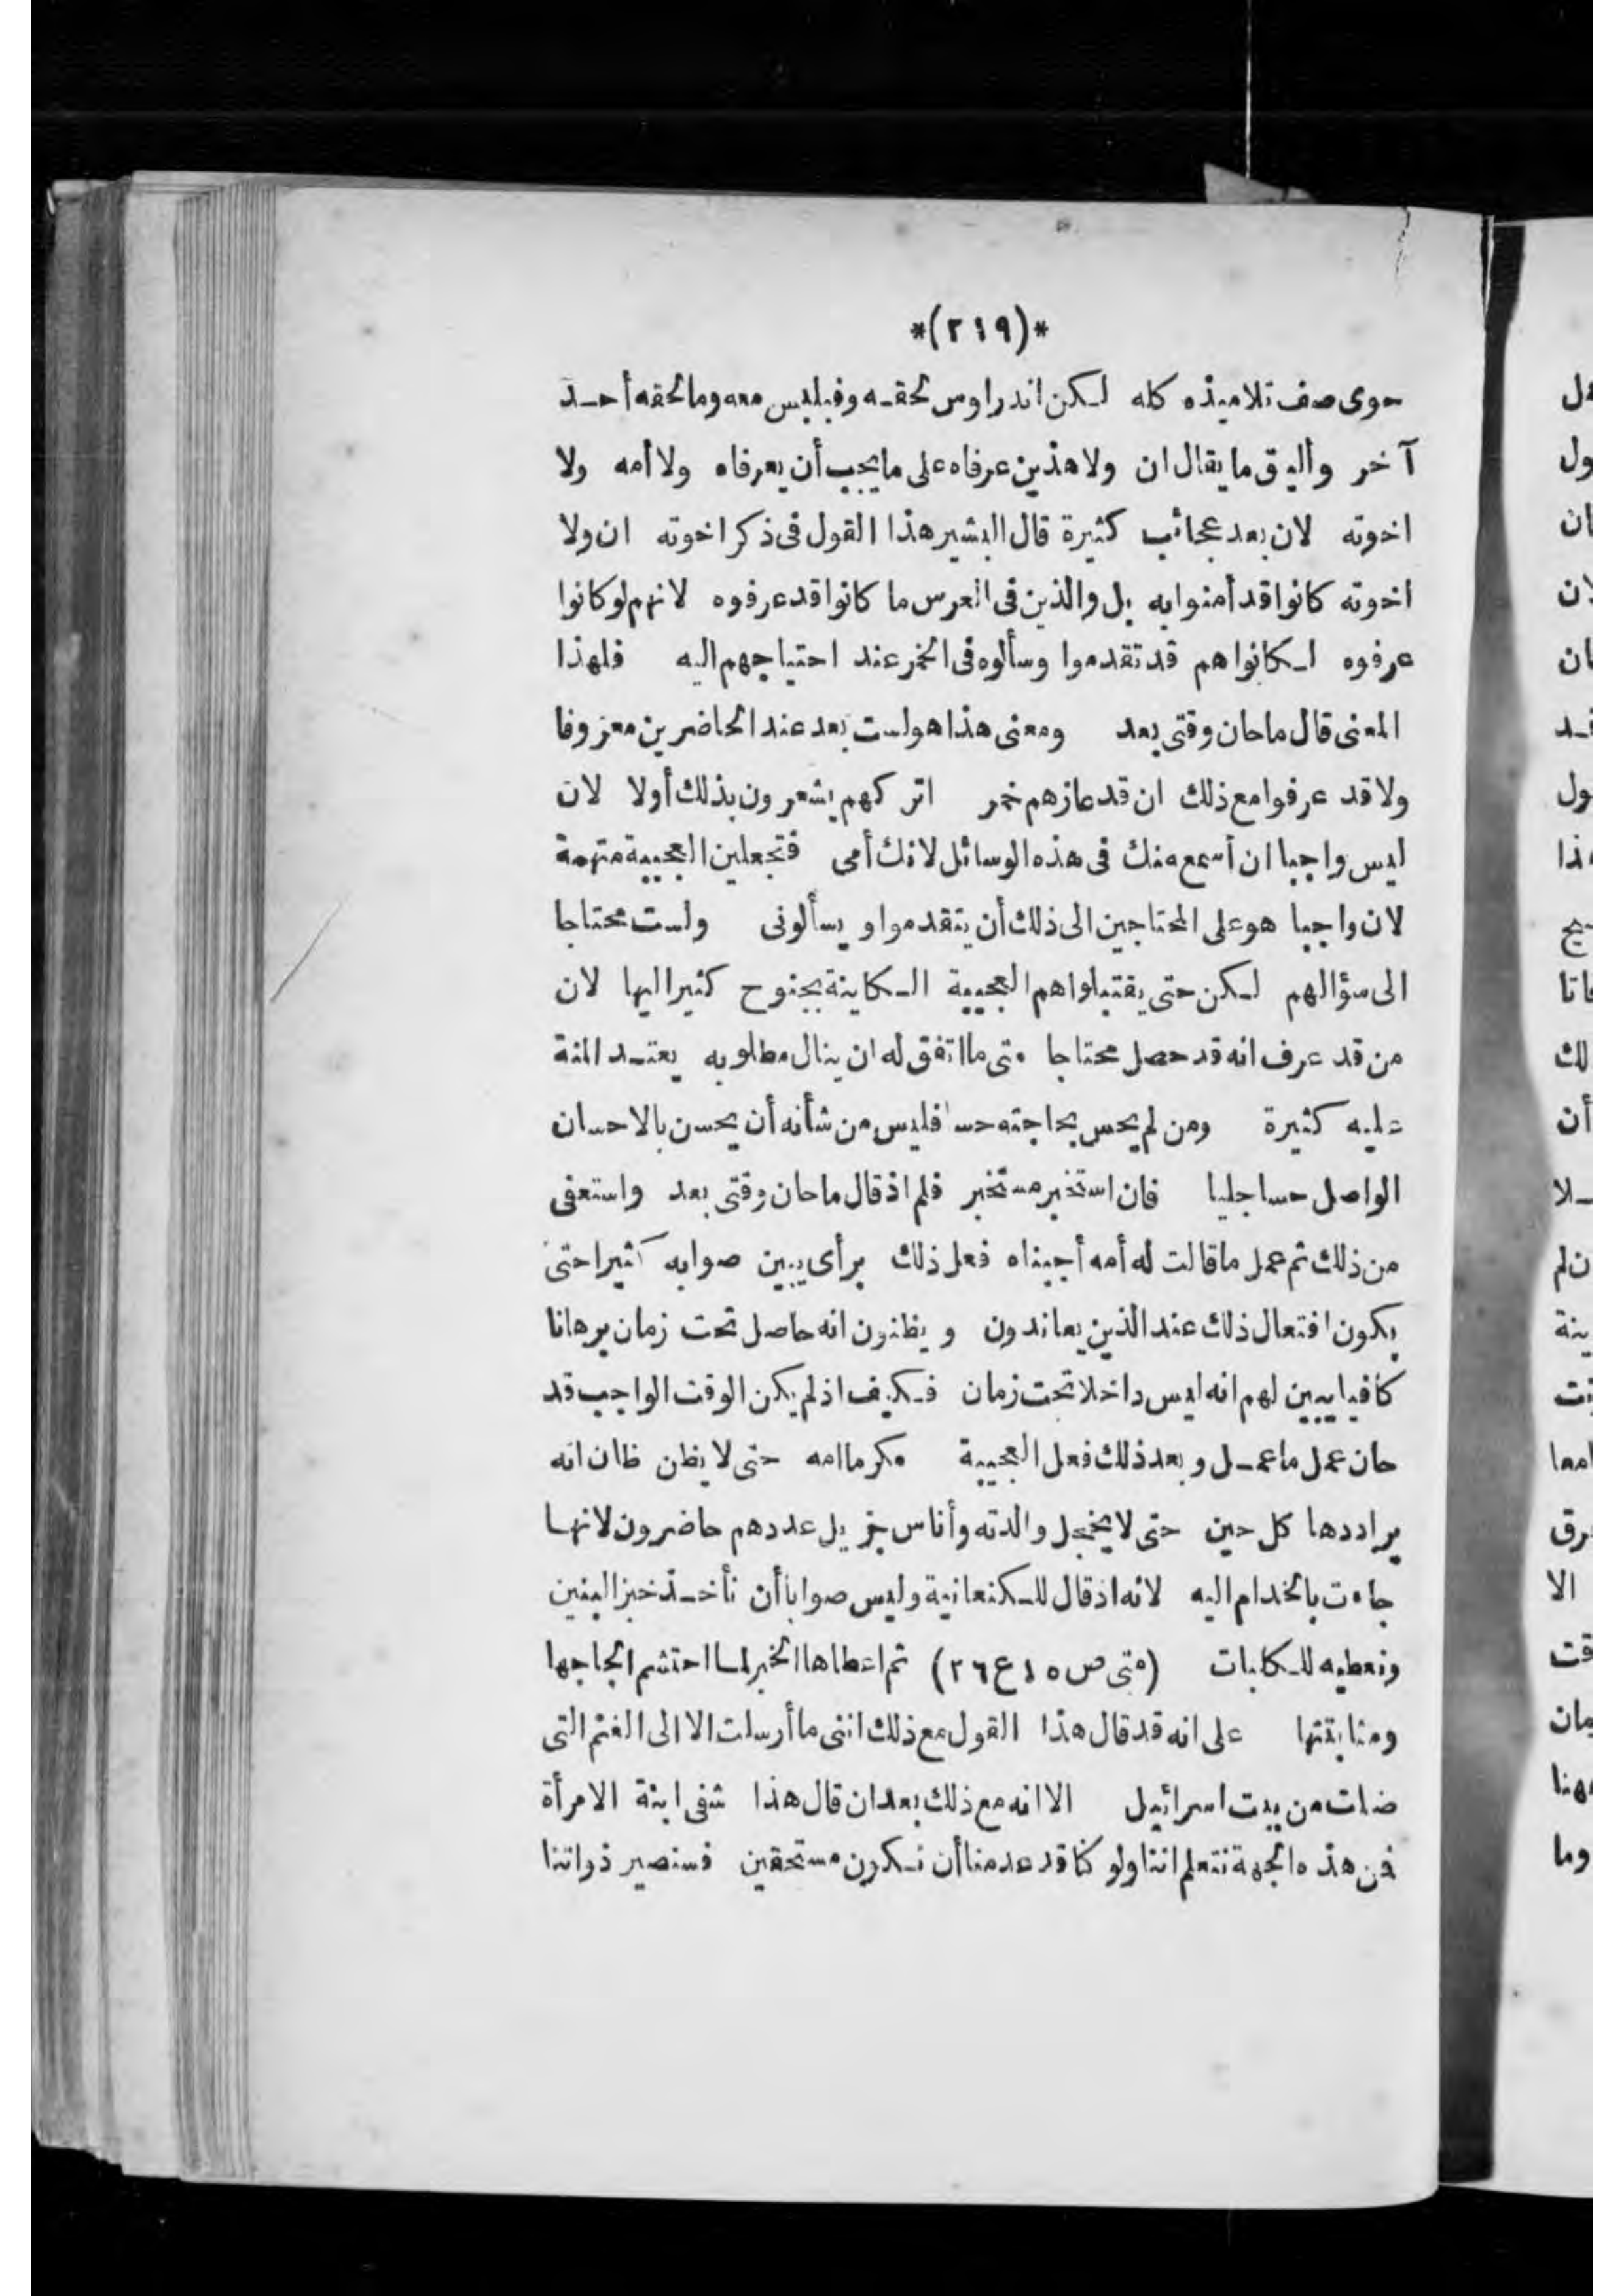 *(٢١٩)*
حوى صف تلاميذه كله لكن اندراوس لحقه وفيلبس معه وما لحقه أحد
آخر وأليق ما يقال ان ولا هذين عرفاه على ما يجب أن يعرفاه ولا أمه ولا
اخوته لان بعد عجائب كثيرة قال البشير هذا القول فى ذكر اخوته ان ولا
اخوته كانوا قد أمنوا به بل والذين فى العرس ما كانوا قد عرفوه لانهم لو كانوا
عرفوه لكانوا هم قد تقدموا وسألوه فى الخمر عند احتياجهم اليه فلهذا
المعنى قال ما حان وقتى بعد ومعنى هذا هو لست بعد عند الحاضرين معروفا
ولا قد عرفوا مع ذلك ان قد عازهم خمر اتركهم يشعرون بذلك أولا لان
ليس واجبا ان أسمع منك فى هذه الوسائل لانك أمى فتجعلين العجيبة متهمة
لان واجبا هو على المحتاجين الى ذلك أن يتقدموا و يسألونى ولست محتاجا
الى سؤالهم لكن حتى يقتبلوا هم العجيبة الكاينة بجنوح كثير اليها لان
من قد عرف انه قد حصل محتاجا متى ما اتفق له ان ينال مطلوبه يعتد المنة
عليه كثيرة ومن لم يحس بحاجته حسا فليس من شأنه أن يحسن بالاحسان
الواصل حسا جليا فان استخبر مستخبر فلم اذ قال ما حان وقتى بعد واستعفى
من ذلك ثم عمل ما قالت له أمه أجبناه فعل ذلك برأى يبين صوابه كثيرا حتى
يكون افتعال ذلك عند الذين يعاندون و يظنون انه حاصل تحت زمان برهانا
كافيا يبين لهم انه ليس داخلا تحت زمان فكيف اذ لم يكن الوقت الواجب قد
حان عمل ما عمل و بعد ذلك فعل العجيبة مكرما امه حتى لا يظن ظان انه
يراددها كل حين حتى لا يخجل والدته وأناس جزيل عددهم حاضرون لانها
جاءت بالخدام اليه لانه اذ قال للكنعانية وليس صوابا أن نأخذ خبز البنين
ونعطيه للكلبات (متى ص ١٥ ع ٢٦) ثم اعطاها الخبز لما احتشم الجاجها
ومثابتتها على انه قد قال هذا القول مع ذلك اننى ما أرسلت الا الى الغنم التى
ضلت من بيت اسرائيل الا انه مع ذلك بعد ان قال هذا شفى ابنة الامرأة
فمن هذه الجهة نتعلم اننا ولو كنا قد عدمنا أن نكون مستحقين فسنصير ذواتنا